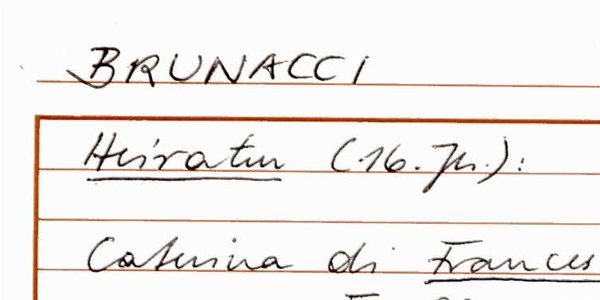 BRUNACCI
Heiraten (16. Jh.):
Caterina di Frances